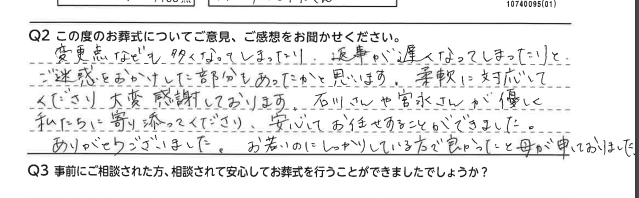 10740095(01)
Q2 この度のお葬式についてご意見、ご感想をお聞かせください。
変更点なども多くなってしまったり、返事が遅くなってしまったりと、
ご迷惑をおかけした部分もあったかと思います。柔軟に対応して
くださり大変感謝しております。石川さんや宮永さんが優しく
私たちに寄り添ってくださり、安心してお任せすることができました。
ありがとうございました。お若いのにしっかりしている方で良かったと母が申しておりました
Q3 事前にご相談された方、相談されて安心してお葬式を行うことができましたでしょうか?